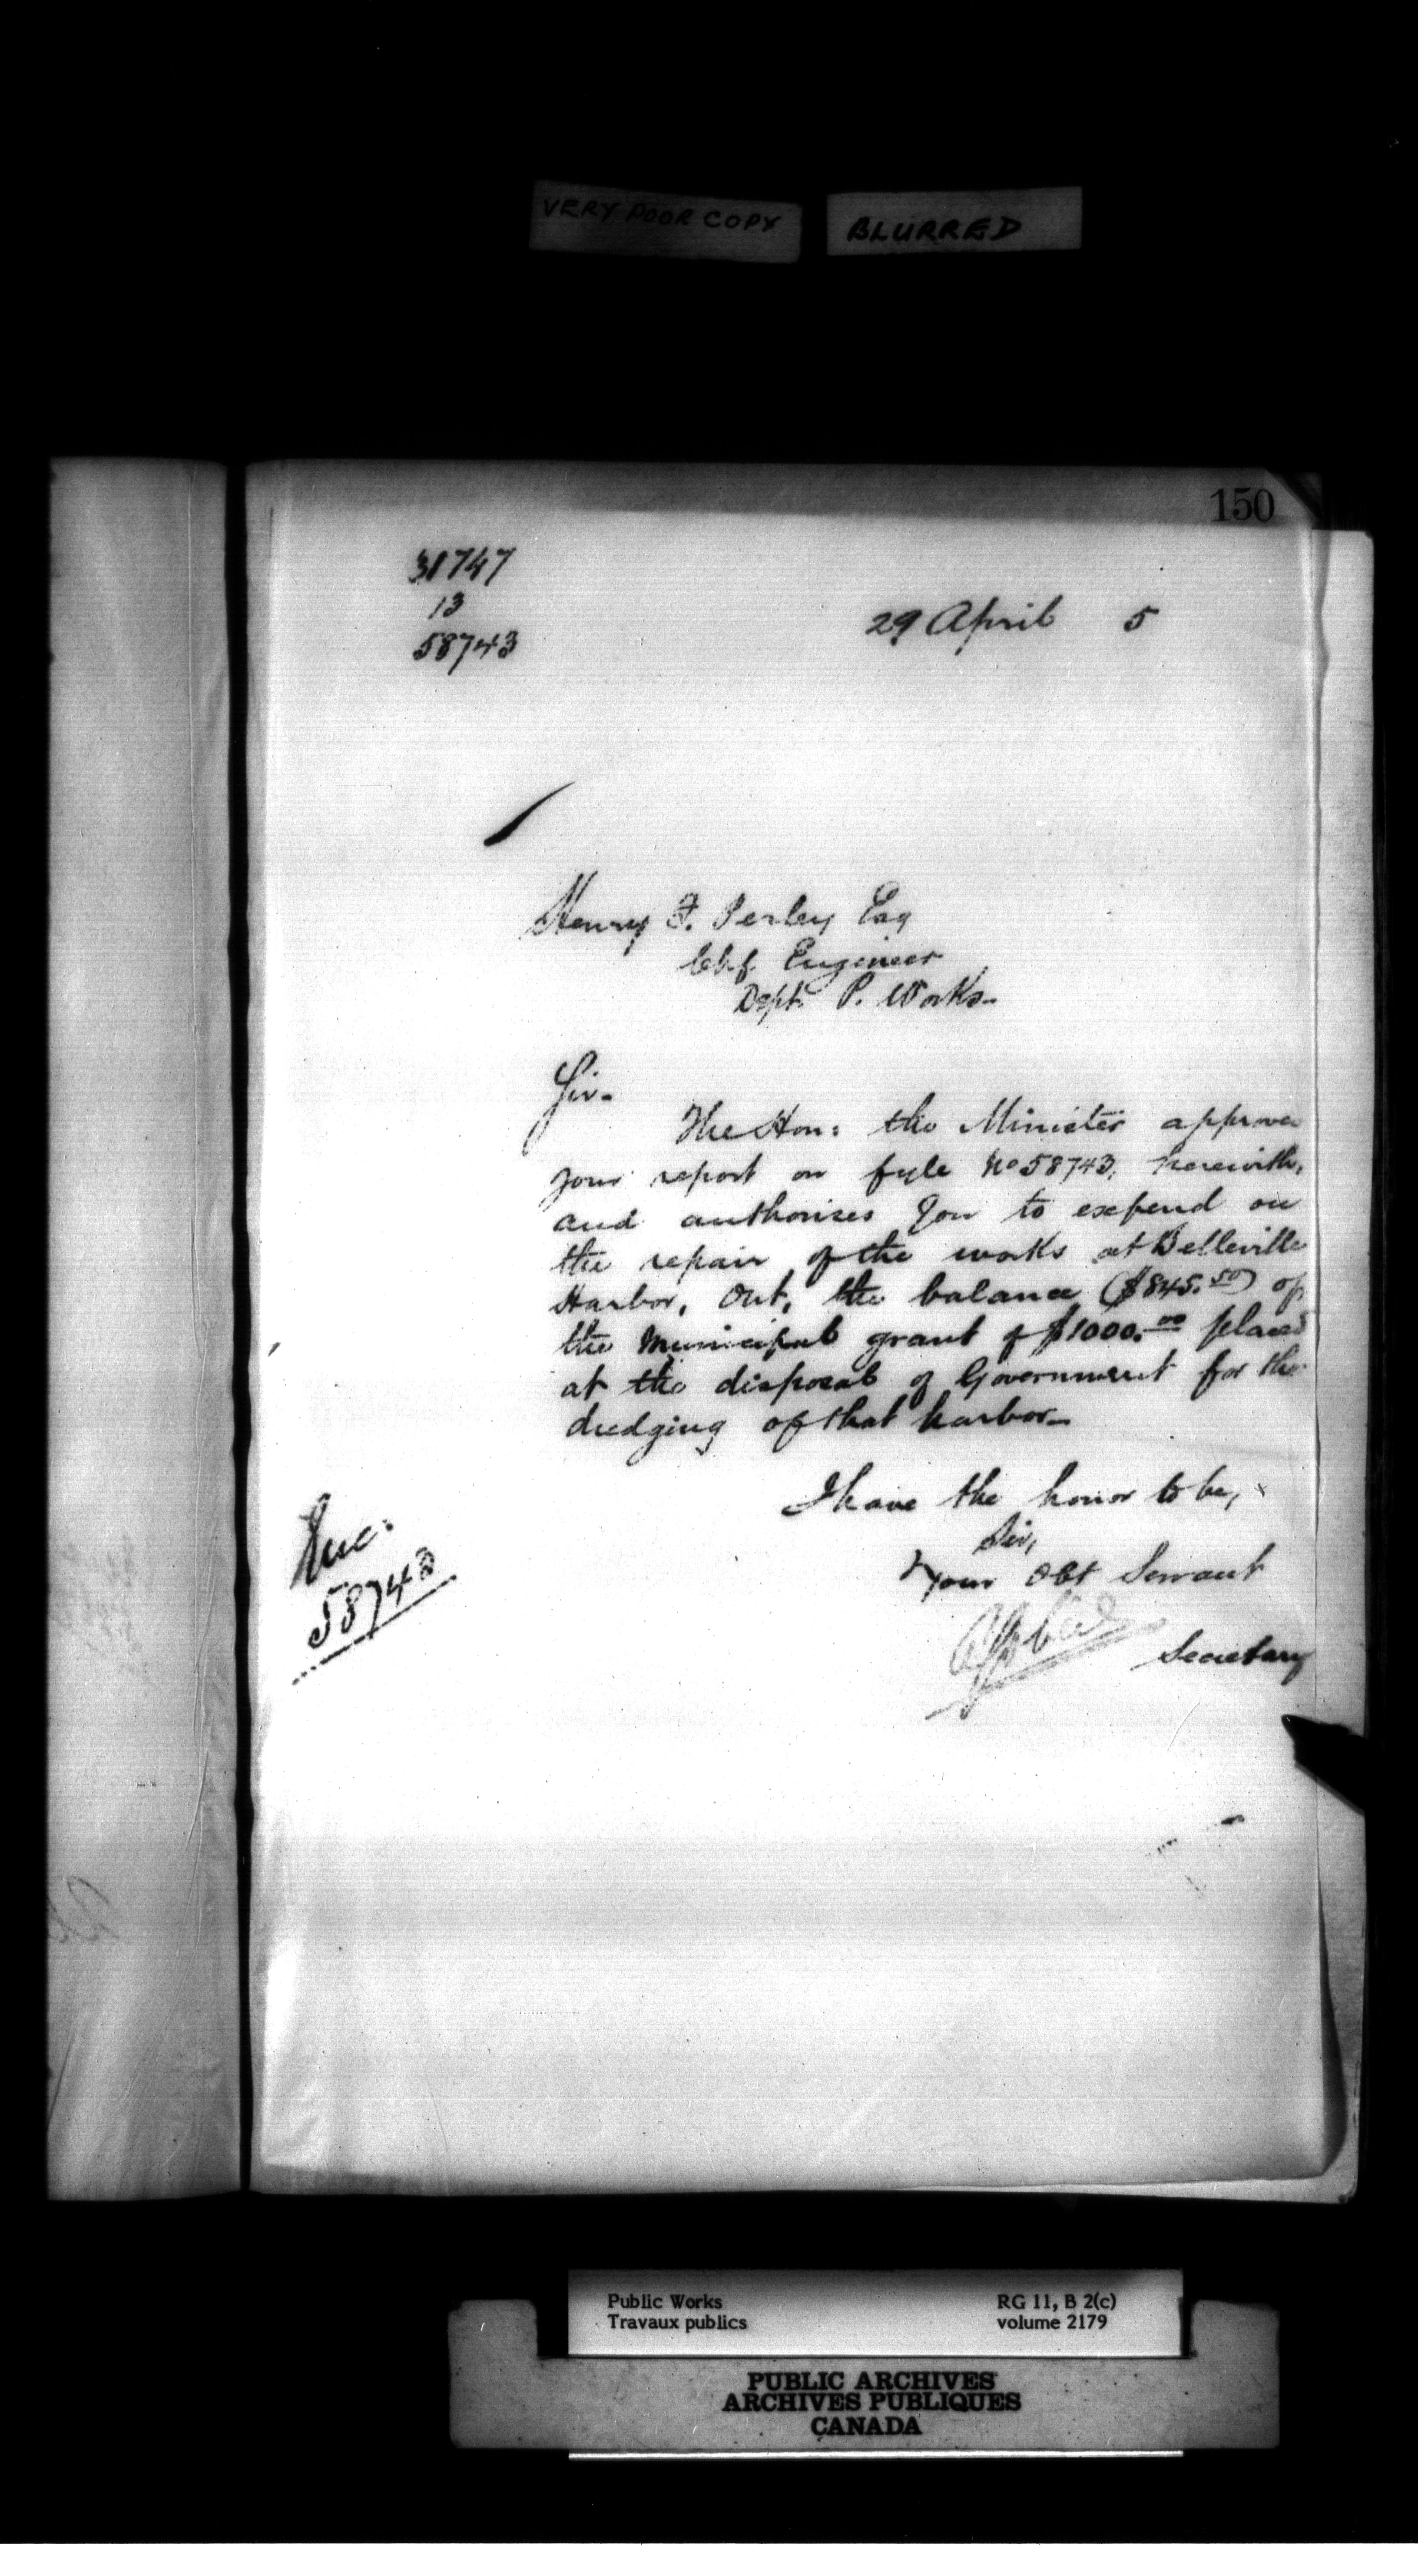 VERY POOR COPY BLURRED
150
31747
13
58743
29 April 5
Henry F. Perley Esq
Chf. Engineer
Dept. P. Works-
Sir-
The Hon: the Minister approves
your report on fyle No 58743, herewith,
and authorises you to expend on
the repair of the works at Belleville
Harbor, Ont, the balance ($845.50) of
the Municipal grant of $1000.00 placed
at the disposal of Government for the
dredging of that harbor-
I have the honor to be,
Sir,
Your Obt Servant
Secretary
Enc:
58743
Public Works RG 11, B 2(c)
Travaux publics volume 2179
PUBLIC ARCHIVES
ARCHIVES PUBLIQUES
CANADA